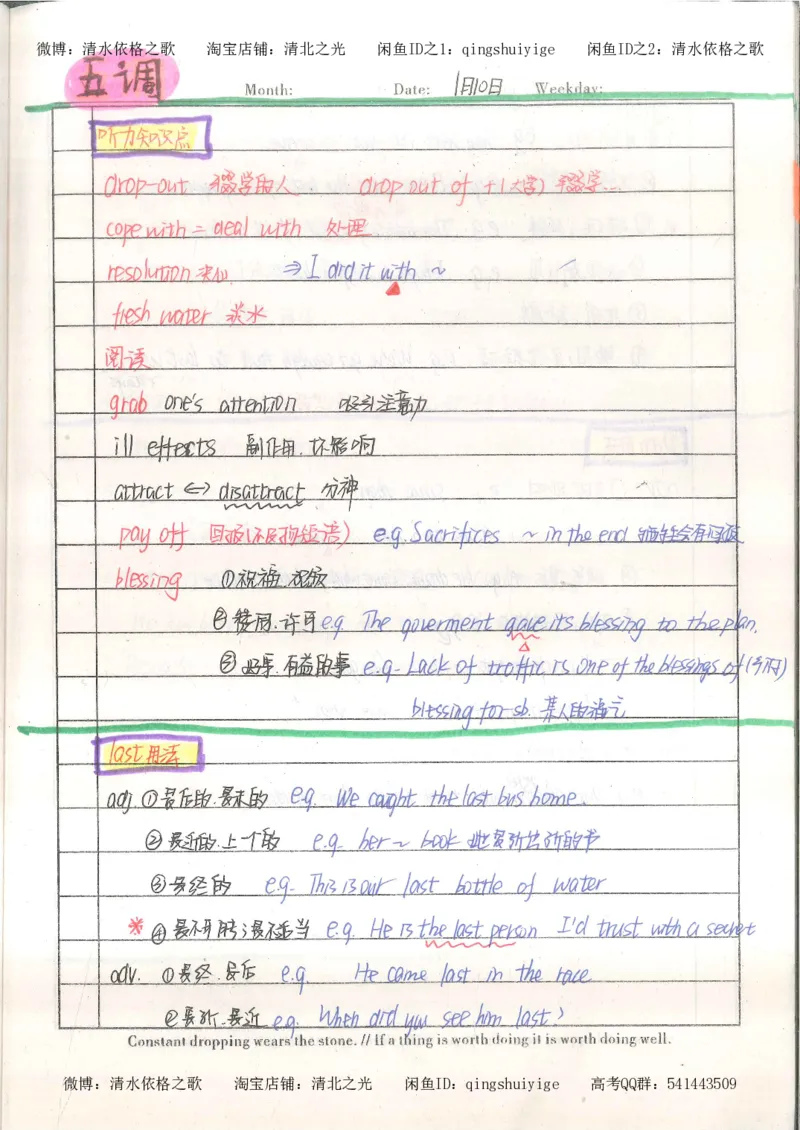 微博：清水依格之歌 淘宝店铺：清北之光 闲鱼ID之1：qingshuiyige 闲鱼ID之2：清水依格之歌
五调
Month: Date: 1月10日 Weekday:
听力知识点
drop-out 辍学的人 drop out of +(大学) 辍学...
cope with = deal with 处理
resolution 决心 ⇒ I did it with ~
fresh water 淡水
阅读
grab one's attention 吸引注意力
ill effects 副作用.坏影响
attract ↔ disattract 分神
pay off 回报(不及物短语) e.g. Sacrifices ~ in the end 牺牲会有回报
blessing ①祝福.祝愿
②赞同.许可 e.g. The goverment gave its blessing to the plan.
③好事.有益的事 e.g. Lack of traffic is one of the blessings of (乡村)
blessing for sb. 某人的福元
last用法
adj ①最后的.最末的 e.g. We caught the last bus home.
②最近的.上一个的 e.g. her ~ book 她最近出的书
③最终的 e.g. This is our last bottle of water
* ④最不可能;最不适当 e.g. He is the last person I'd trust with a secret
adv. ①最终.最后 e.g. He came last in the race
②最新.最近 e.g. When did you see him last?
Constant dropping wears the stone. // If a thing is worth doing it is worth doing well.
微博：清水依格之歌 淘宝店铺：清北之光 闲鱼ID：qingshuiyige 高考QQ群：541443509